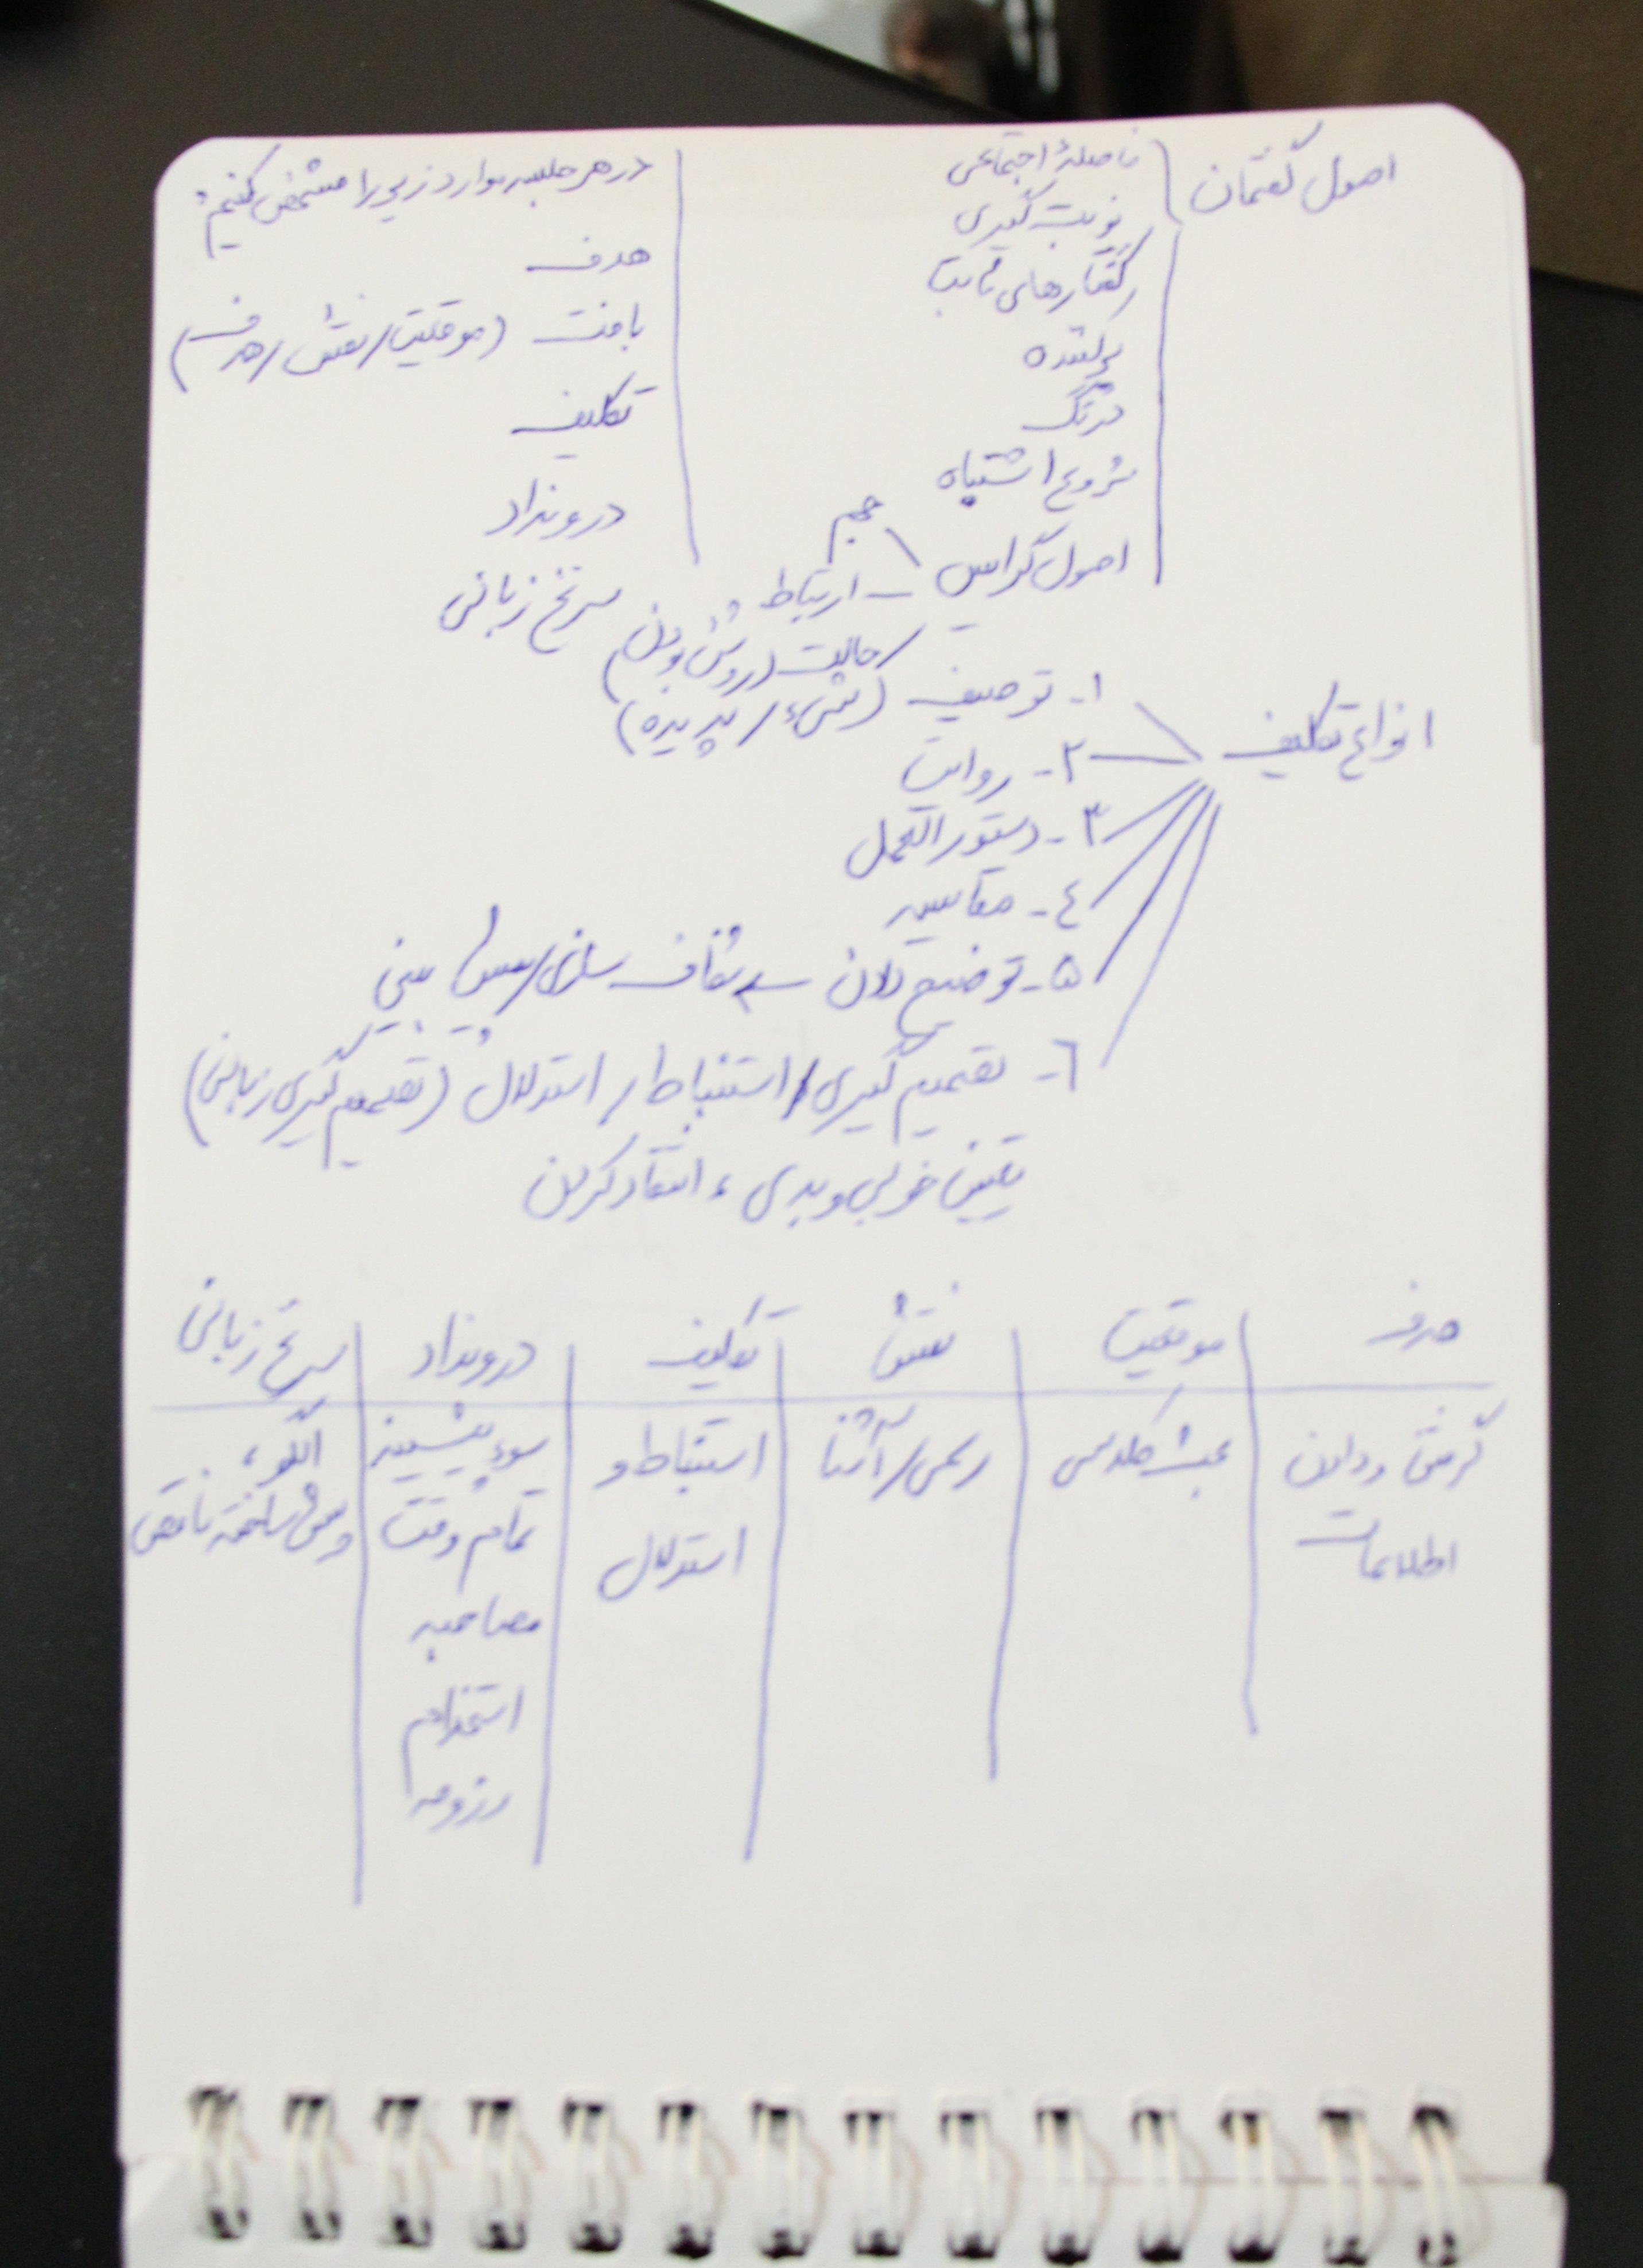 اصول گفتمان
فاصلهٔ اجتماعی
نوبت گیری
گفتارهای ثابت
پرکننده
درنگ
شروع اشتباه
اصول گرایس
حجم
ارتباط
حالت (روشن بودن)
در هر جلسه موارد زیر را مشخص کنیم:
هدف
بافت (موقعیت / نقش / هدف)
تکلیف
درونداد
سرنخ زبانی
انواع تکلیف
۱- توصیف (شیء / پدیده)
۲- روایت
۳- دستورالعمل
٤- مقایسه
۵- توضیح دادن شفاف سازی / پیش بینی
٦- تصمیم گیری / استنباط / استدلال (تصمیم گیری زبانی)
تعیین خوبی و بدی، انتقاد کردن
هدف | موقعیت | نقش | تکلیف | درونداد | سرنخ زبانی
گرفتن و دادن اطلاعات | بحث کلاسی | رسمی / آشنا | استنباط و استدلال | سوء پیشینه تمام وقت مصاحبه استخدام رزومه | الگو، ساخته ناقص